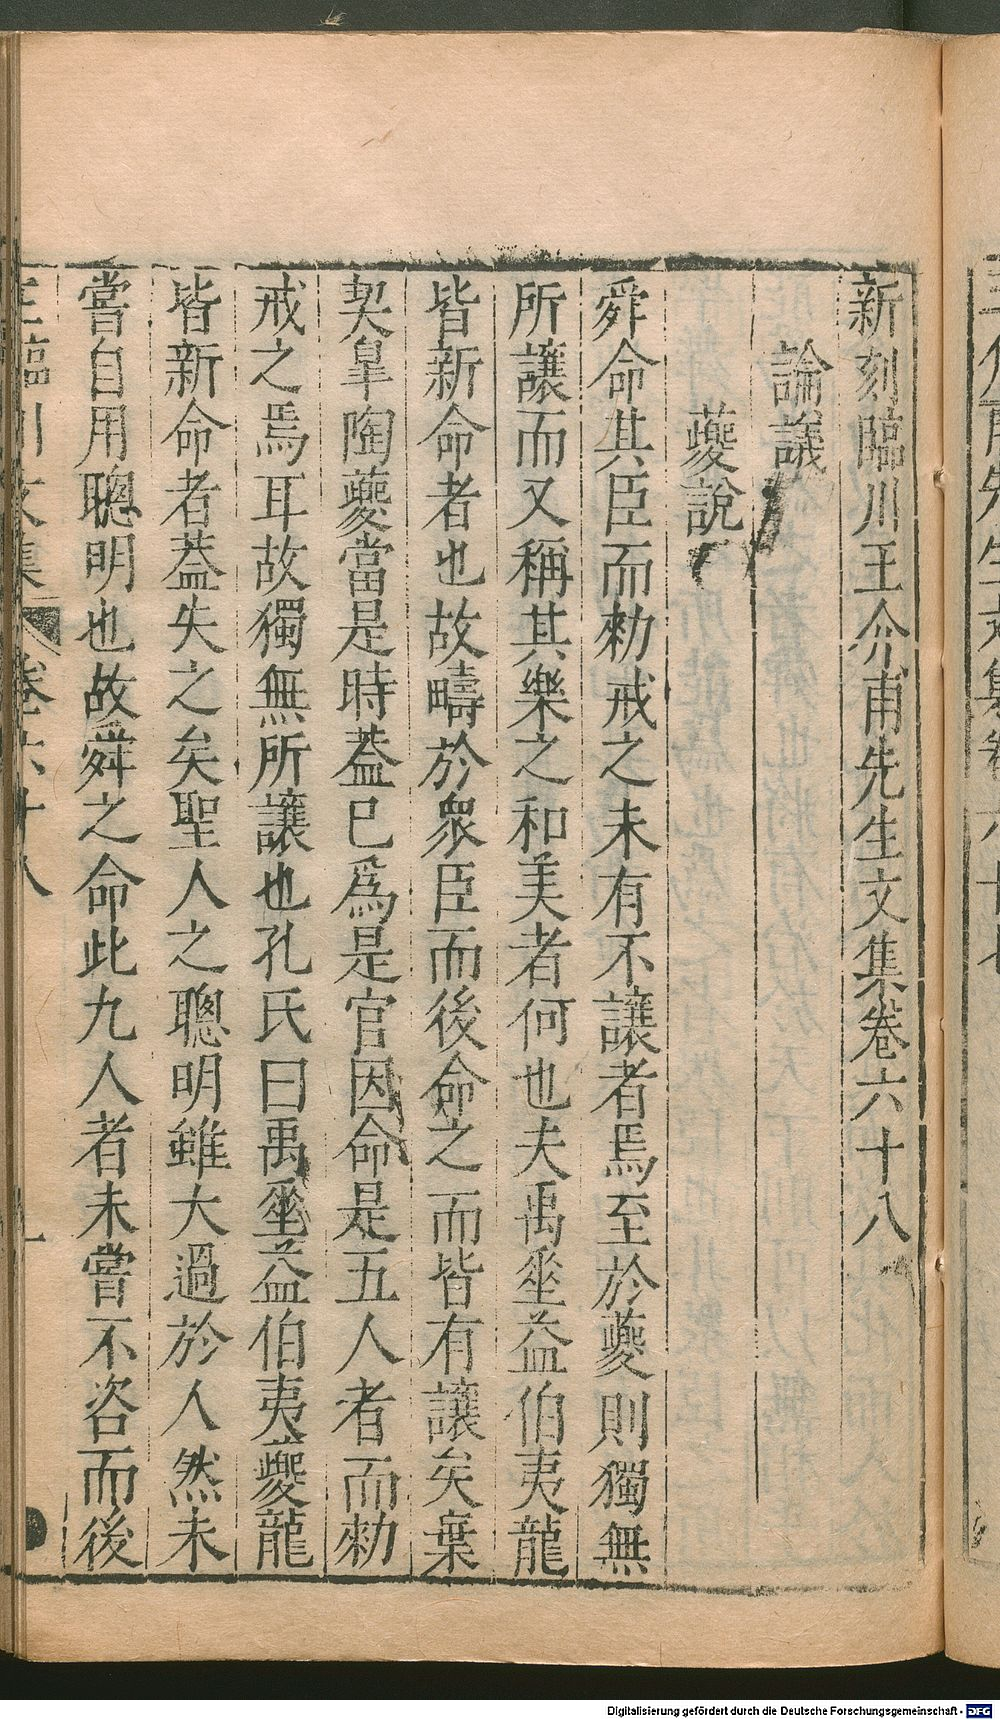 新刻臨川王介甫先生文集卷六十八
論議
夔說
舜命其臣而勑戒之未有不讓者焉至於夔則獨無
所讓而又稱其樂之和美者何也夫禹垂益伯夷龍
皆新命者也故疇於衆臣而後命之而皆有讓矣棄
契臯陶夔當是時葢已爲是官因命是五人者而勑
戒之焉耳故獨無所讓也孔氏曰禹垂益伯夷夔龍
皆新命者葢失之矣聖人之聰明雖大過於人然未
嘗自用聰明也故舜之命此九人者未嘗不咨而後
王臨川文集 卷六十八 一
Digitalisierung gefördert durch die Deutsche Forschungsgemeinschaft - DFG